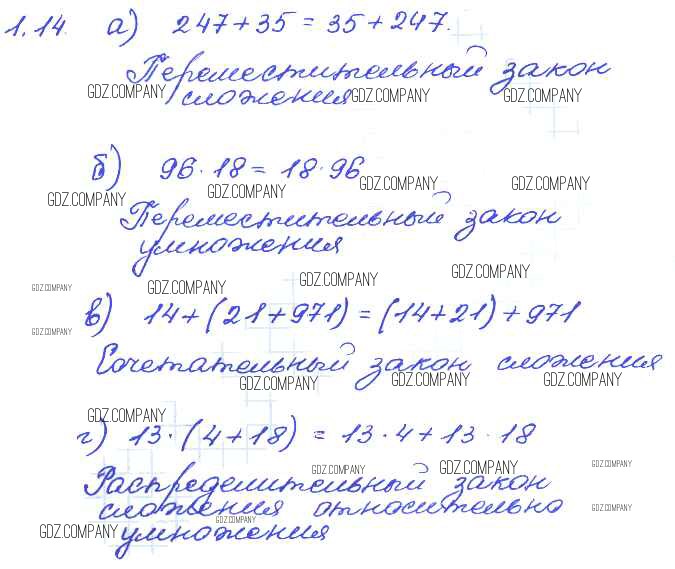 1.14. а) 247 + 35 = 35 + 247.
Переместительный закон
GDZ.COMPANY сложения GDZ.COMPANY GDZ.COMPANY
б) 96 · 18 = 18 · 96
GDZ.COMPANY GDZ.COMPANY GDZ.COMPANY GDZ.COMPANY
Переместительный закон
умножения
GDZ.COMPANY GDZ.COMPANY GDZ.COMPANY GDZ.COMPANY
в) 14 + (21 + 971) = (14 + 21) + 971
GDZ.COMPANY
Сочетательный закон сложения
GDZ.COMPANY GDZ.COMPANY GDZ.COMPANY
GDZ.COMPANY
г) 13 · (4 + 18) = 13 · 4 + 13 · 18
GDZ.COMPANY GDZ.COMPANY GDZ.COMPANY
Распределительный закон
сложения относительно
GDZ.COMPANY GDZ.COMPANY
GDZ.COMPANY умножения